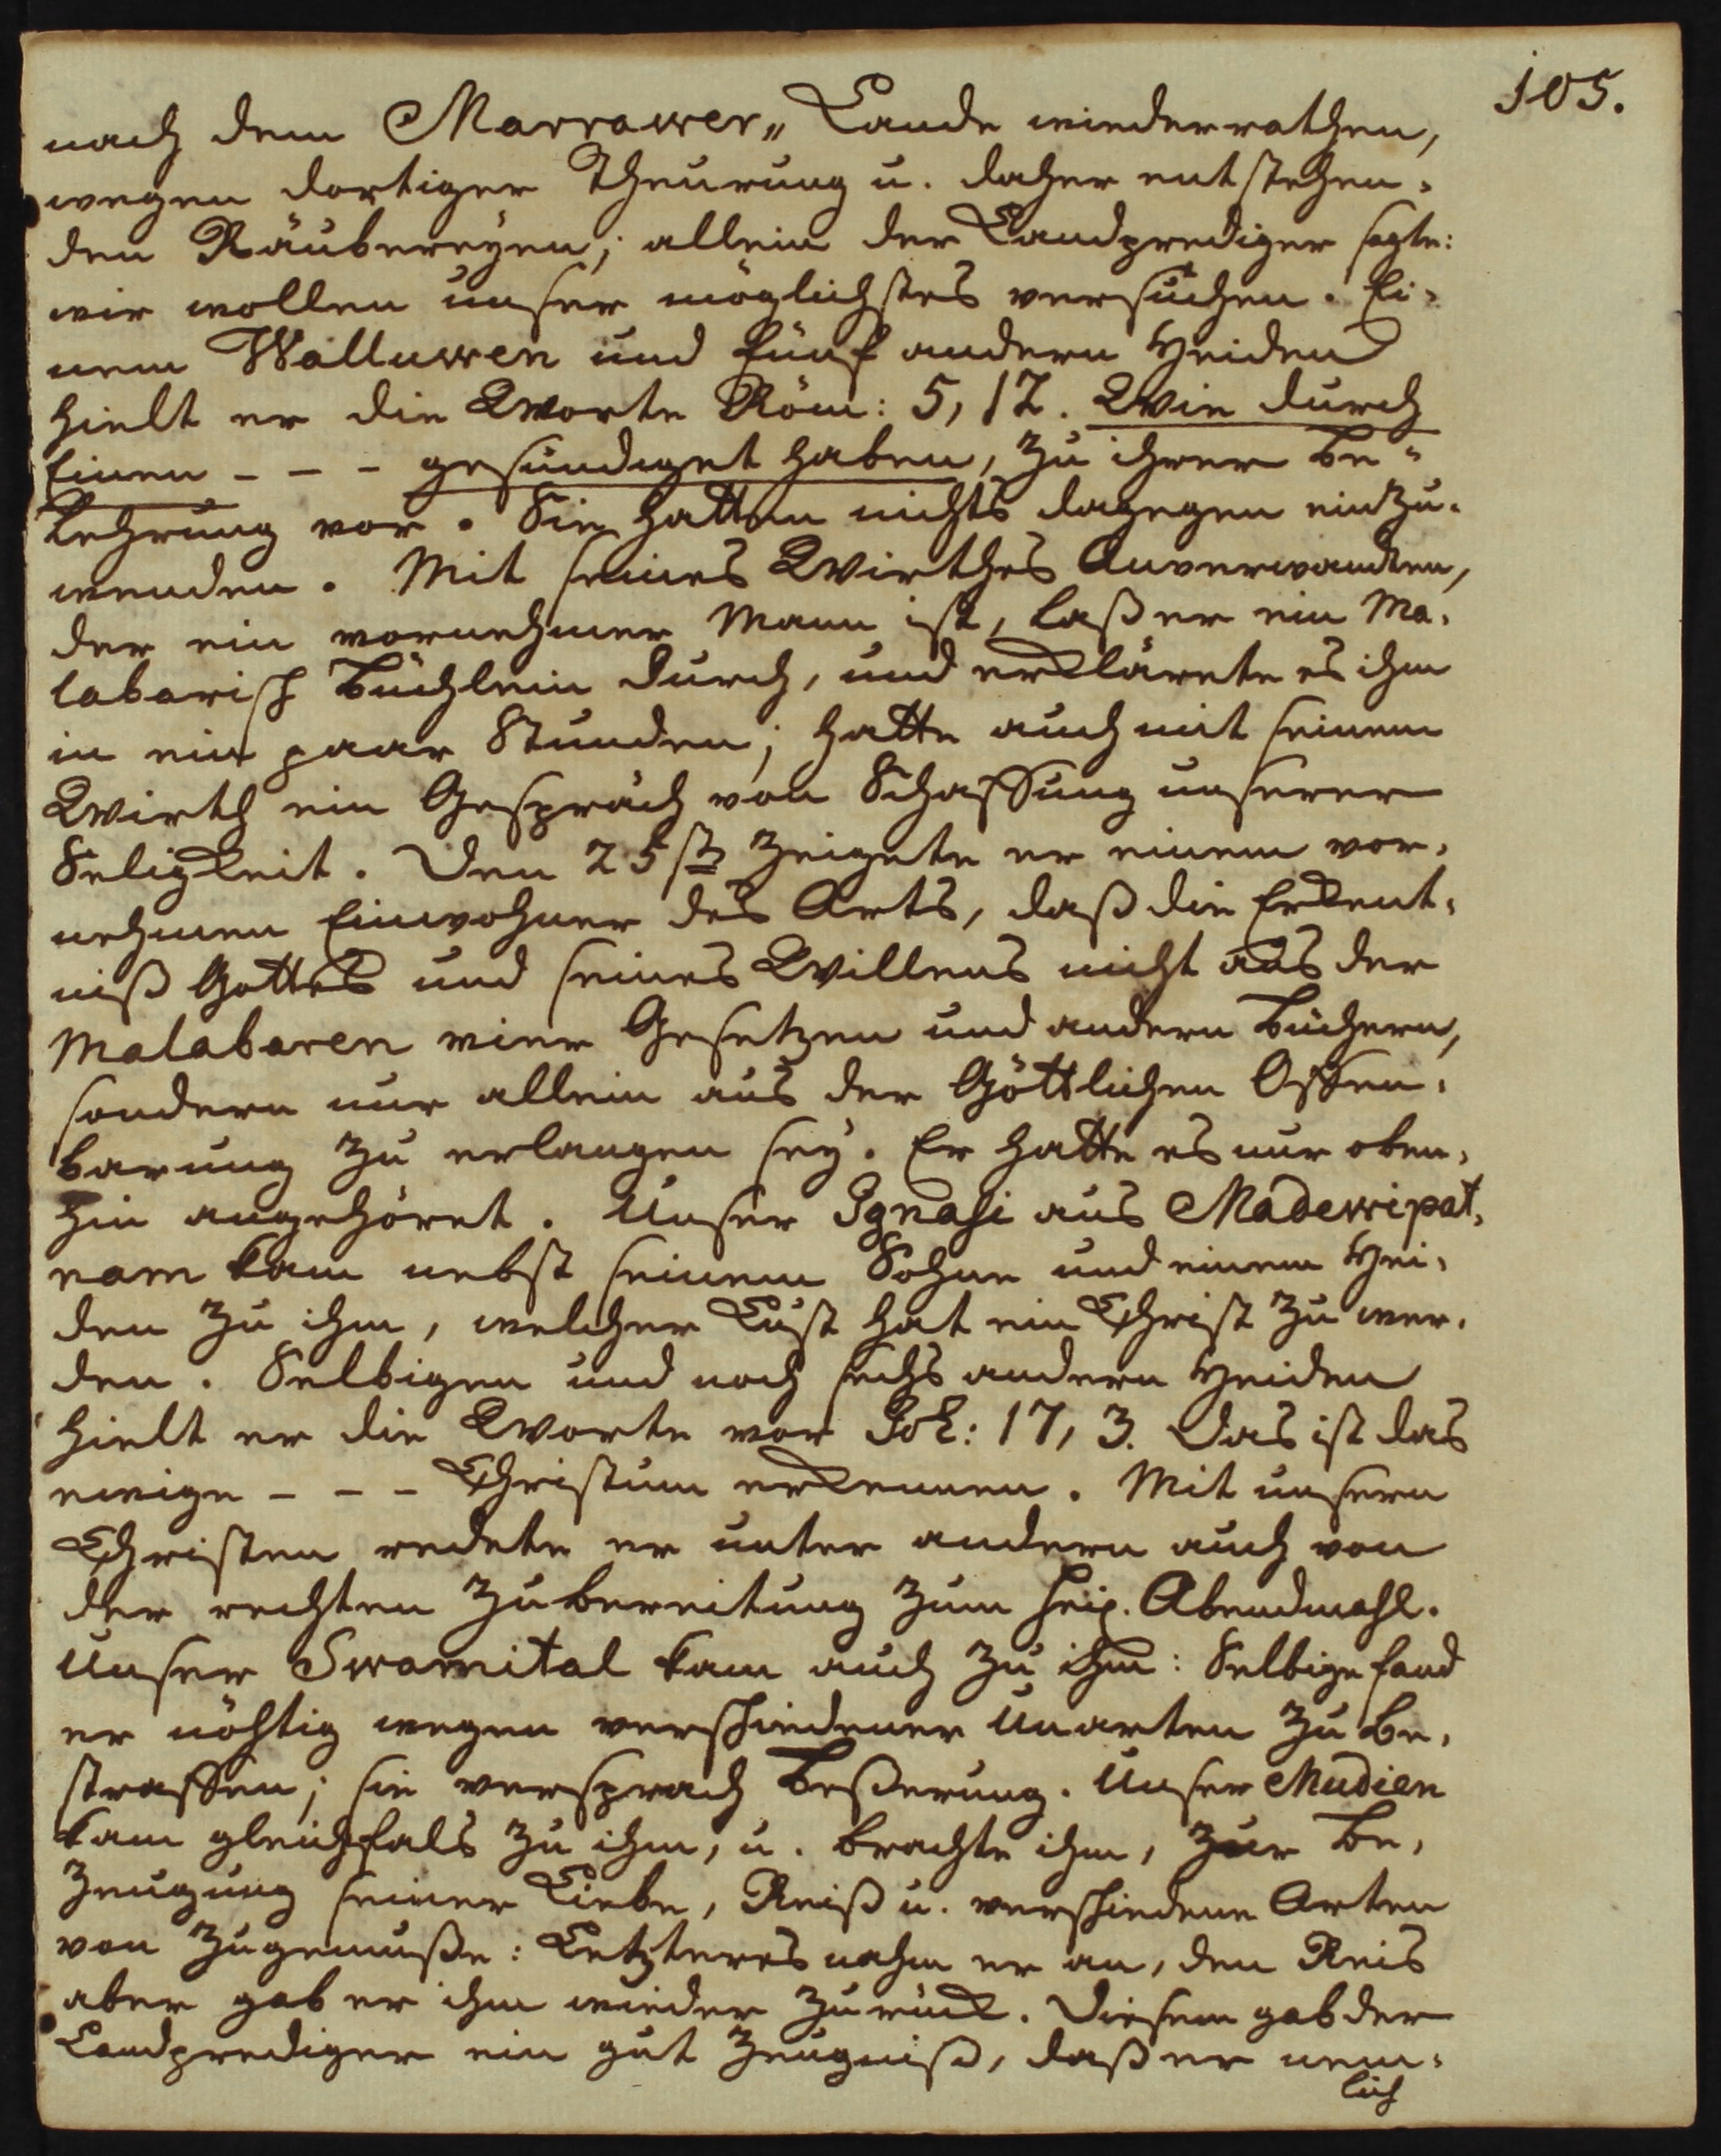 105.
nach dem Marrawer„ Lande wiederrathen,
wegen dortiger Theurung u. daher entstehen-
den Räubereyen; allein der Landprediger sagte:
wir wollen unser möglichstes versuchen. Ei-
nem Walluwen und fünf andern Heiden
hielt er die Worte Röm: 5, 12. Wie durch
Einen - - - gesündiget haben, zu ihrer Be-
kehrung vor. Sie hatten nichts dagegen einzu-
wenden. Mit seines Wirthes Anverwandten,
der ein vornehmer Mann ist, laß er ein Ma-
labarisch Büchlein durch, und erklärete es ihm
in ein paar Stunden; hatte auch mit seinem
Wirth ein Gespräch von Schaffung unserer
Seligkeit. Den 25st zeigete er einem vor-
nehmen Einwohner des Orts, daß die Erkent-
niß Gottes und seines Willens nicht aus der
Malabaren vier Gesetzen und andern Büchern,
sondern nur allein aus der Göttlichen Offen-
barung zu erlangen sey. Er hatte es nur oben-
hin angehöret. Unser Ignasi aus Madewipat-
nam kam nebst seinem Sohne und einem Hei-
den zu ihm, welcher Lust hat ein Christ zu wer-
den. Selbigen und noch sechs andern Heiden
hielt er die Worte vor Joh: 17, 3. Das ist das
ewige - - - Christum erkennen. Mit unsern
Christen redete er unter andern auch von
der rechten Zubereitung zum heil. Abendmahl.
Unser Swamital kam auch zu ihm: Selbige fand
er nöhtig wegen verschiedener Unarten zu be-
straffen; sie versprach Beßerung. Unser Mudien
kam gleichfals zu ihm, u. brachte ihm, zur Be-
zeugung seiner Liebe, Reiß u. verschiedene Arten
von Zugemüße: Letzteres nahm er an, den Reis
aber gab er ihm wieder zurück. Diesem gab der
Landprediger ein gut Zeugniß, daß er nem-
lich